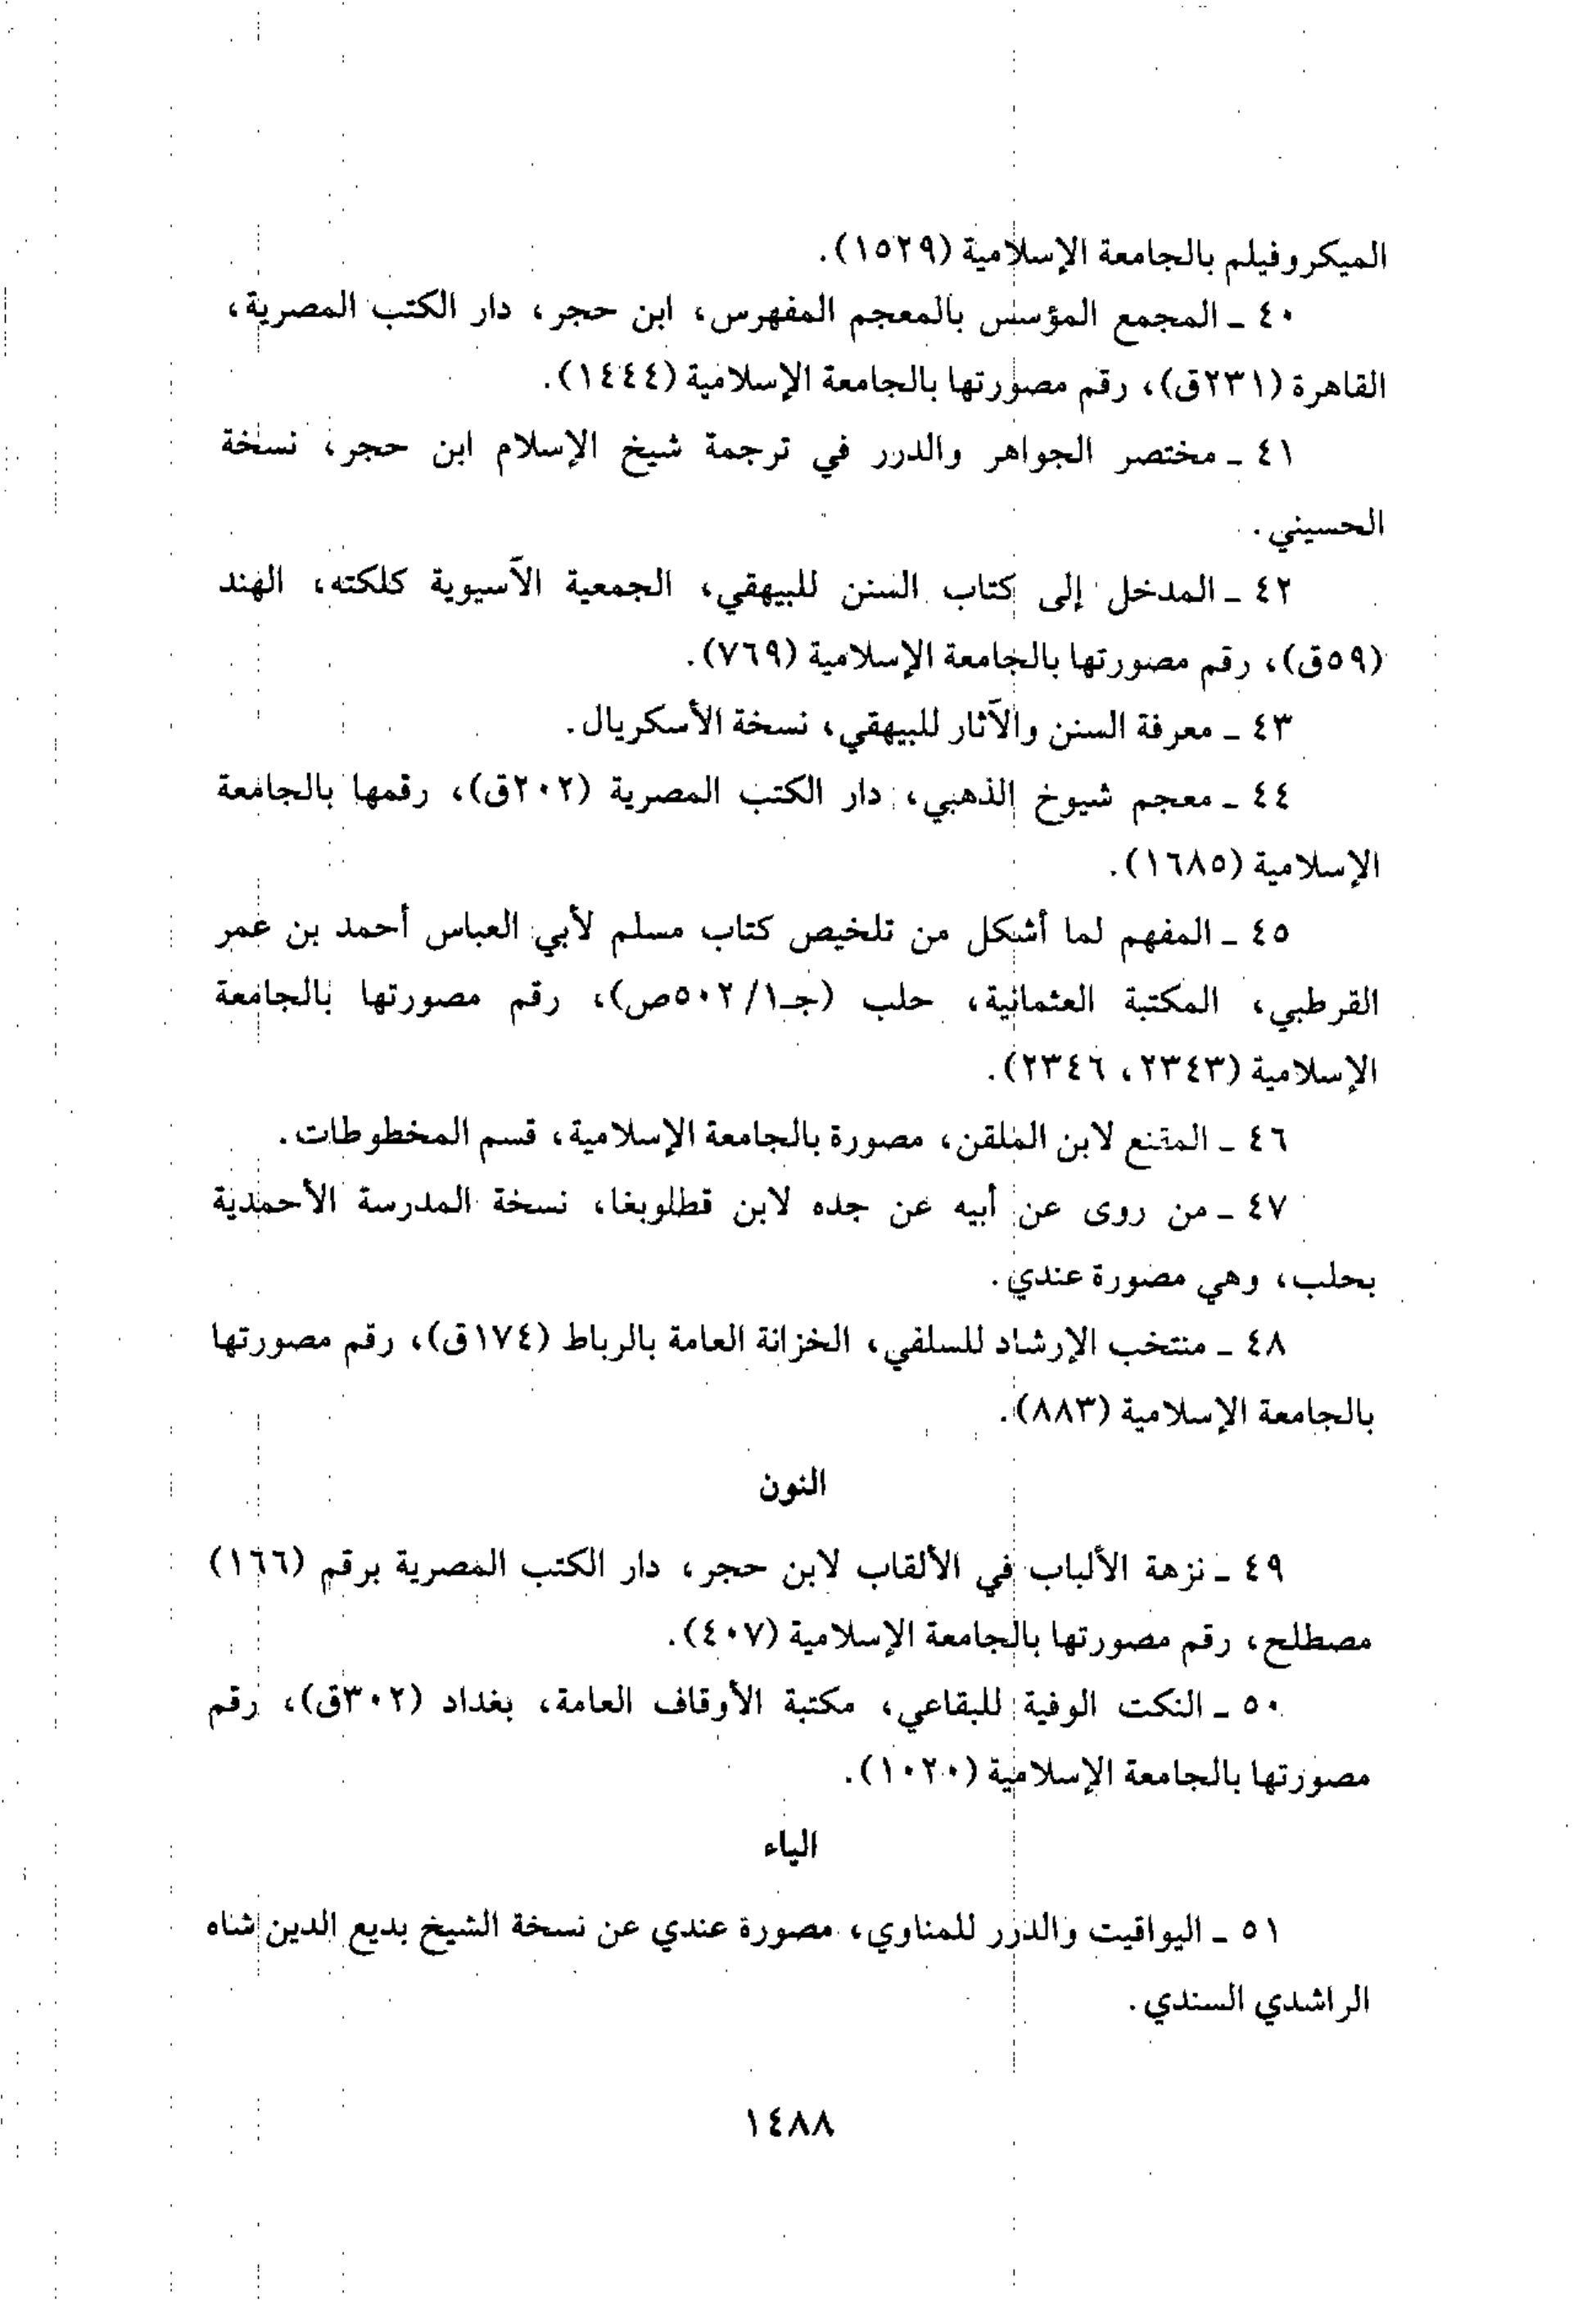 الميكروفيلم بالجامعة الإسلامية (١٥٢٩).
٤٠ ـ المجمع المؤسس بالمعجم المفهرس، ابن حجر، دار الكتب المصرية،
القاهرة (٢٣١ق)، رقم مصورتها بالجامعة الإسلامية (١٤٤٤).
٤١ ـ مختصر الجواهر والدرر في ترجمة شيخ الإسلام ابن حجر، نسخة
الحسيني.
٤٢ ـ المدخل إلى كتاب السنن للبيهقي، الجمعية الآسيوية كلكته، الهند
(٥٩ق)، رقم مصورتها بالجامعة الإسلامية (٧٦٩).
٤٣ ـ معرفة السنن والآثار للبيهقي، نسخة الأسكريال.
٤٤ ـ معجم شيوخ الذهبي، دار الكتب المصرية (٢٠٢ق)، رقمها بالجامعة
الإسلامية (١٦٨٥).
٤٥ ـ المفهم لما أشكل من تلخيص كتاب مسلم لأبي العباس أحمد بن عمر
القرطبي، المكتبة العثمانية، حلب (جـ١/٥٠٢ص)، رقم مصورتها بالجامعة
الإسلامية (٢٣٤٣، ٢٣٤٦).
٤٦ ـ المقنع لابن الملقن، مصورة بالجامعة الإسلامية، قسم المخطوطات.
٤٧ ـ من روى عن أبيه عن جده لابن قطلوبغا، نسخة المدرسة الأحمدية
بحلب، وهي مصورة عندي.
٤٨ ـ منتخب الإرشاد للسلفي، الخزانة العامة بالرباط (١٧٤ق)، رقم مصورتها
بالجامعة الإسلامية (٨٨٣).
النون
٤٩ ـ نزهة الألباب في الألقاب لابن حجر، دار الكتب المصرية برقم (١٦٦)
مصطلح، رقم مصورتها بالجامعة الإسلامية (٤٠٧).
٥٠ ـ النكت الوفية للبقاعي، مكتبة الأوقاف العامة، بغداد (٣٠٢ق)، رقم
مصورتها بالجامعة الإسلامية (١٠٢٠).
الياء
٥١ ـ اليواقيت والدرر للمناوي، مصورة عندي عن نسخة الشيخ بديع الدين شاه
الراشدي السندي.
١٤٨٨